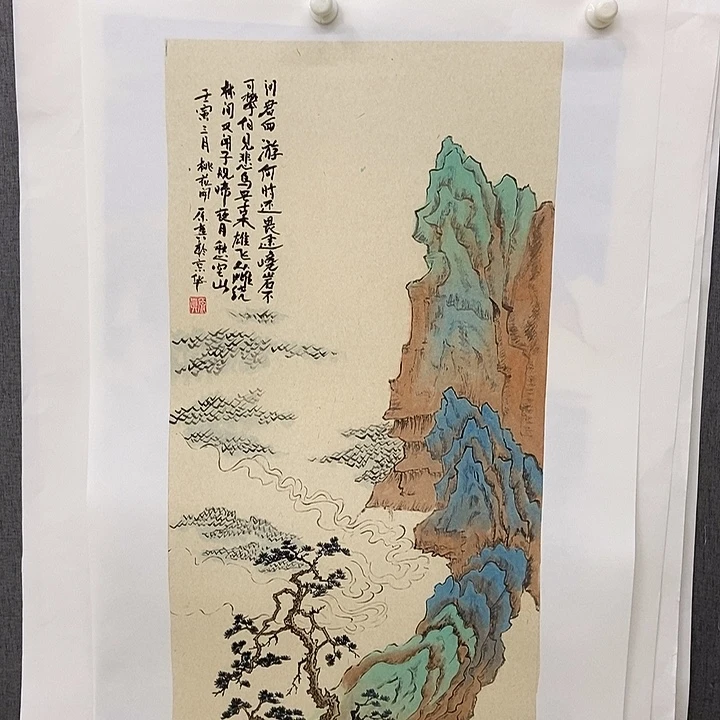 问君西游何时还畏途巉岩不
可攀但见悲鸟号古木雄飞从雌绕
林间又闻子规啼夜月愁空山
壬寅三月桃花开 于京华